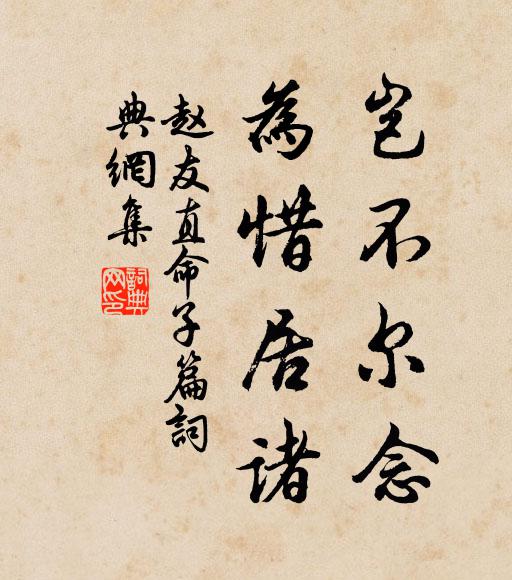 岂不尔念
為惜居诸
赵友直命子篇詞
典網集
詞典
网印